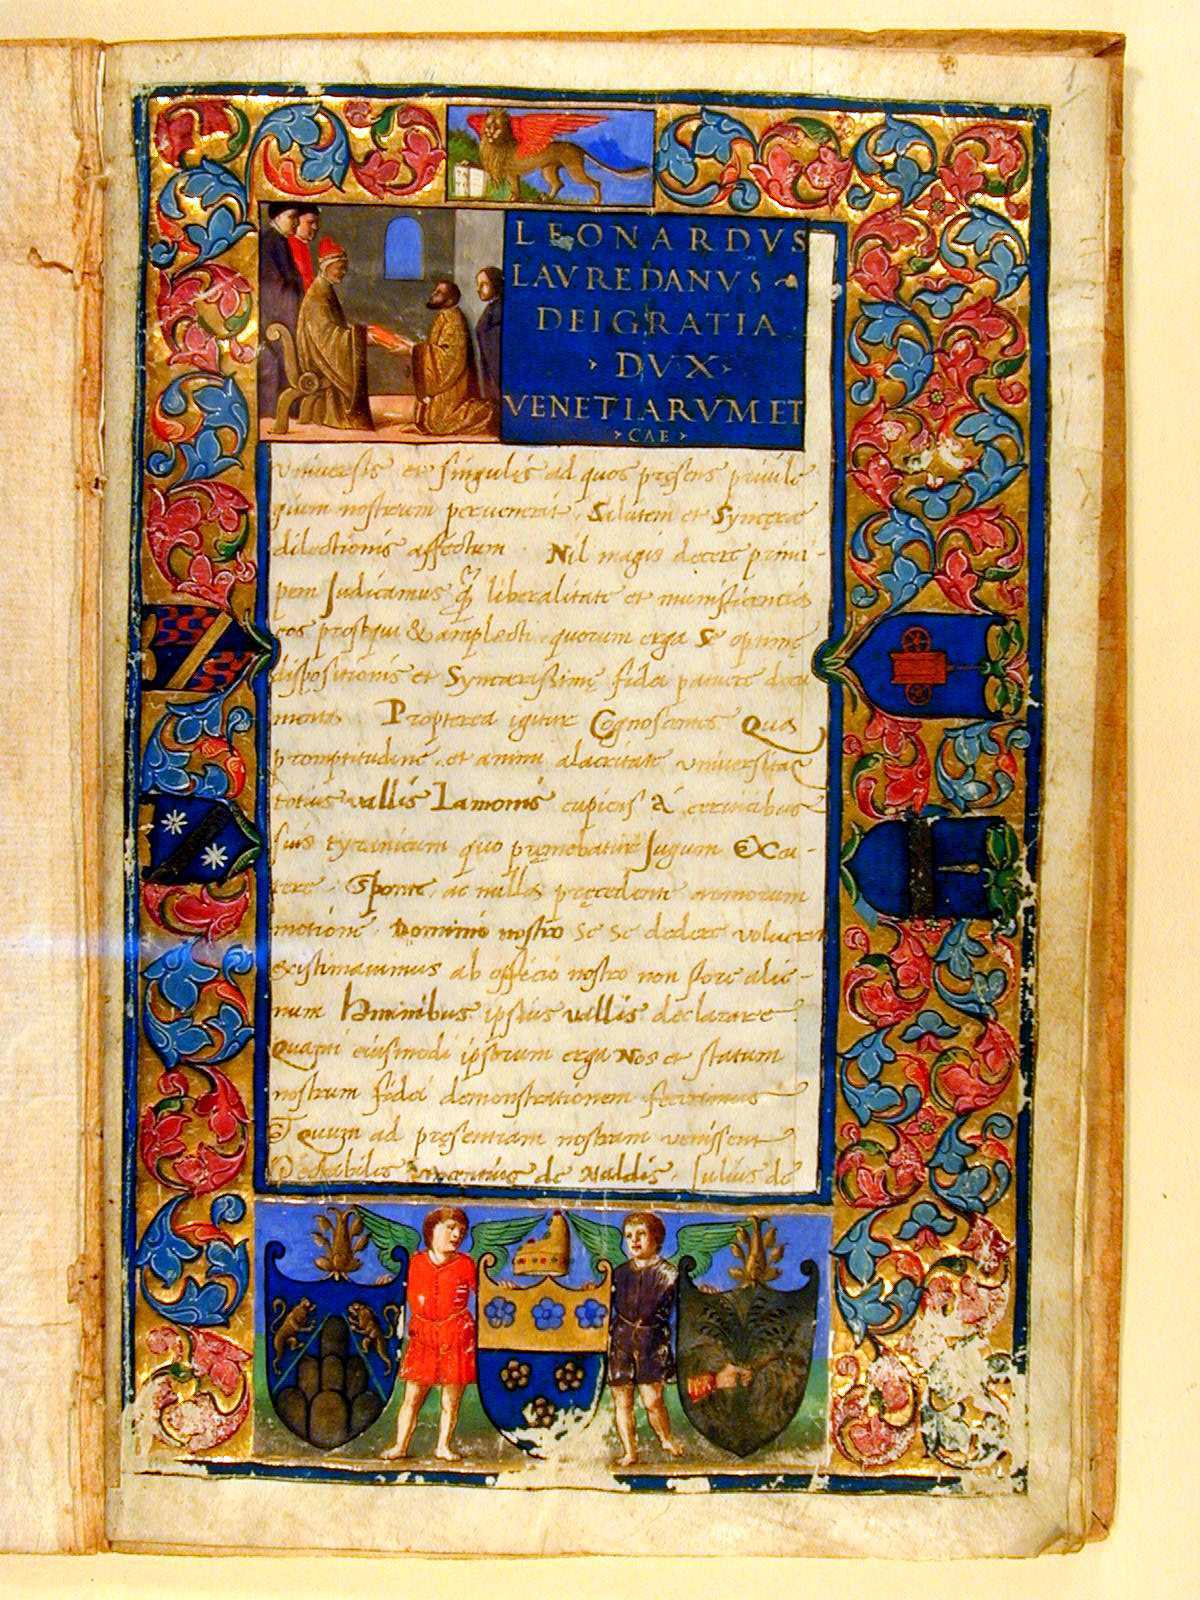 LEONARDVS
LAVREDANVS
DEI GRATIA
DVX
VENETIARVM ET
CAE
Vniuersis et singulis ad quos pręsens priuile
gium nostrum peruenerit. Salutem et Syncęrę
dilectionis affectum. Nil magis decere princi-
pem Judicamus liberalitate et munificencia
eos prosequi & amplecti quorum erga Se optimę
dispositionis et Syncerissimę fidei patuere docu
menta Propterea igitur Cognoscentes Qua
promptitudine et animi alacritate vniuersitas
totius vallis Lamonis cupiens A ceruicibus
suis tyranicum quo pręmebatur Jugum Excu-
tere. Sponte ac nulla pręcedente armorum
motione Dominio nostro Se Se dedere voluerit
Existimauimus ab officio nostro non fore alie-
num Hominibus ipsius vallis declarare
Quanti eiusmodi ipsorum erga Nos et statum
nostrum fidei demonstrationem fecerimus
Quum ad pręsentiam nostram venissent
Spectabiles Vincentius de Naldis. Julius de